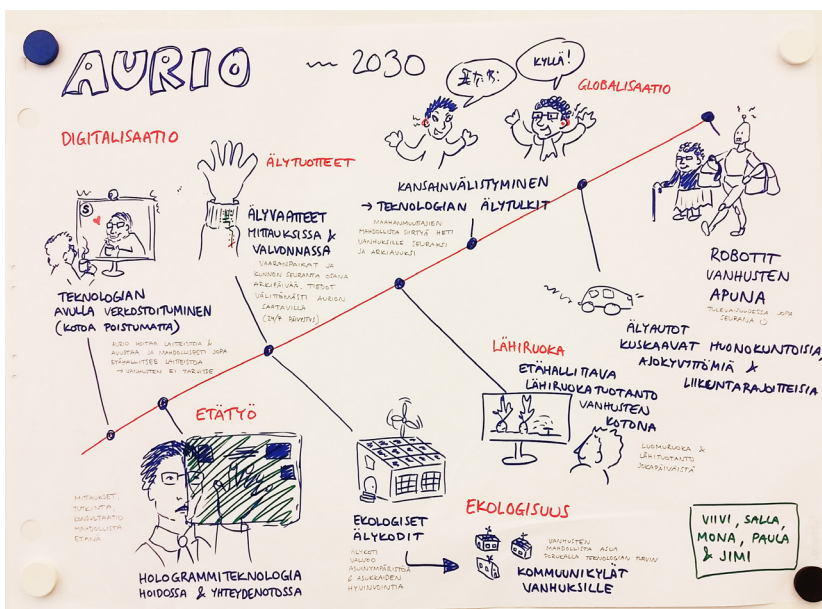 AURIO ~ 2030
DIGITALISAATIO
S
TEKNOLOGIAN
AVULLA VERKOSTOITUMINEN
(KOTOA POISTUMATTA)
AURIO HOITAA LAITTEISTOA &
AVUSTAA JA MAHDOLLISESTI JOPA
ETÄHALLITSEE LAITTEISTOA
→ VANHUSTEN EI TARVITSE
ÄLYTUOTTEET
ÄLYVAATTEET
MITTAUKSISSA &
VALVONNASSA
VAARANPAIKAT JA
KUNNON SEURANTA OSANA
ARKIPÄIVÄÄ, TIEDOT
VÄLITTÖMÄSTI AURION
SAATAVILLA
(24/7 PÄIVYSTYS)
KYLLÄ!
GLOBALISAATIO
KANSAINVÄLISTYMINEN
→ TEKNOLOGIAN ÄLYTULKIT
MAAHANMUUTTAJIEN
MAHDOLLISTA SIIRTYÄ HETI
VANHUKSILLE SEURAKSI
JA ARKIAVUKSI
ROBOTIT
VANHUSTEN
APUNA
TULEVAISUUDESSA JOPA
SEURANA
ÄLYAUTOT
KUSKAAVAT HUONOKUNTOISIA,
AJOKYVYTTÖMIÄ &
LIIKUNTARAJOITTEISIA
LÄHIRUOKA
ETÄHALLITTAVA
LÄHIRUOKATUOTANTO
VANHUSTEN
KOTONA
LUOMURUOKA &
LÄHITUOTANTO
JOKAPÄIVÄISTÄ
ETÄTYÖ
MITTAUKSET,
TUTKINTA,
KONSULTAATIO
MAHDOLLISTA
ETÄNÄ
HOLOGRAMMITEKNOLOGIA
HOIDOSSA & YHTEYDENOTOSSA
EKOLOGISET
ÄLYKODIT
ÄLYKOTI
VALVOO
ASUINYMPÄRISTÖÄ
& ASUKKAIDEN
HYVINVOINTIA
EKOLOGISUUS
VANHUSTEN
MAHDOLLISTA ASUA
TEKNOLOGIAN TURVIN
KOMMUUNIKYLÄT
VANHUKSILLE
VIIVI, SALLA,
MONA, PAULA
& JIMI